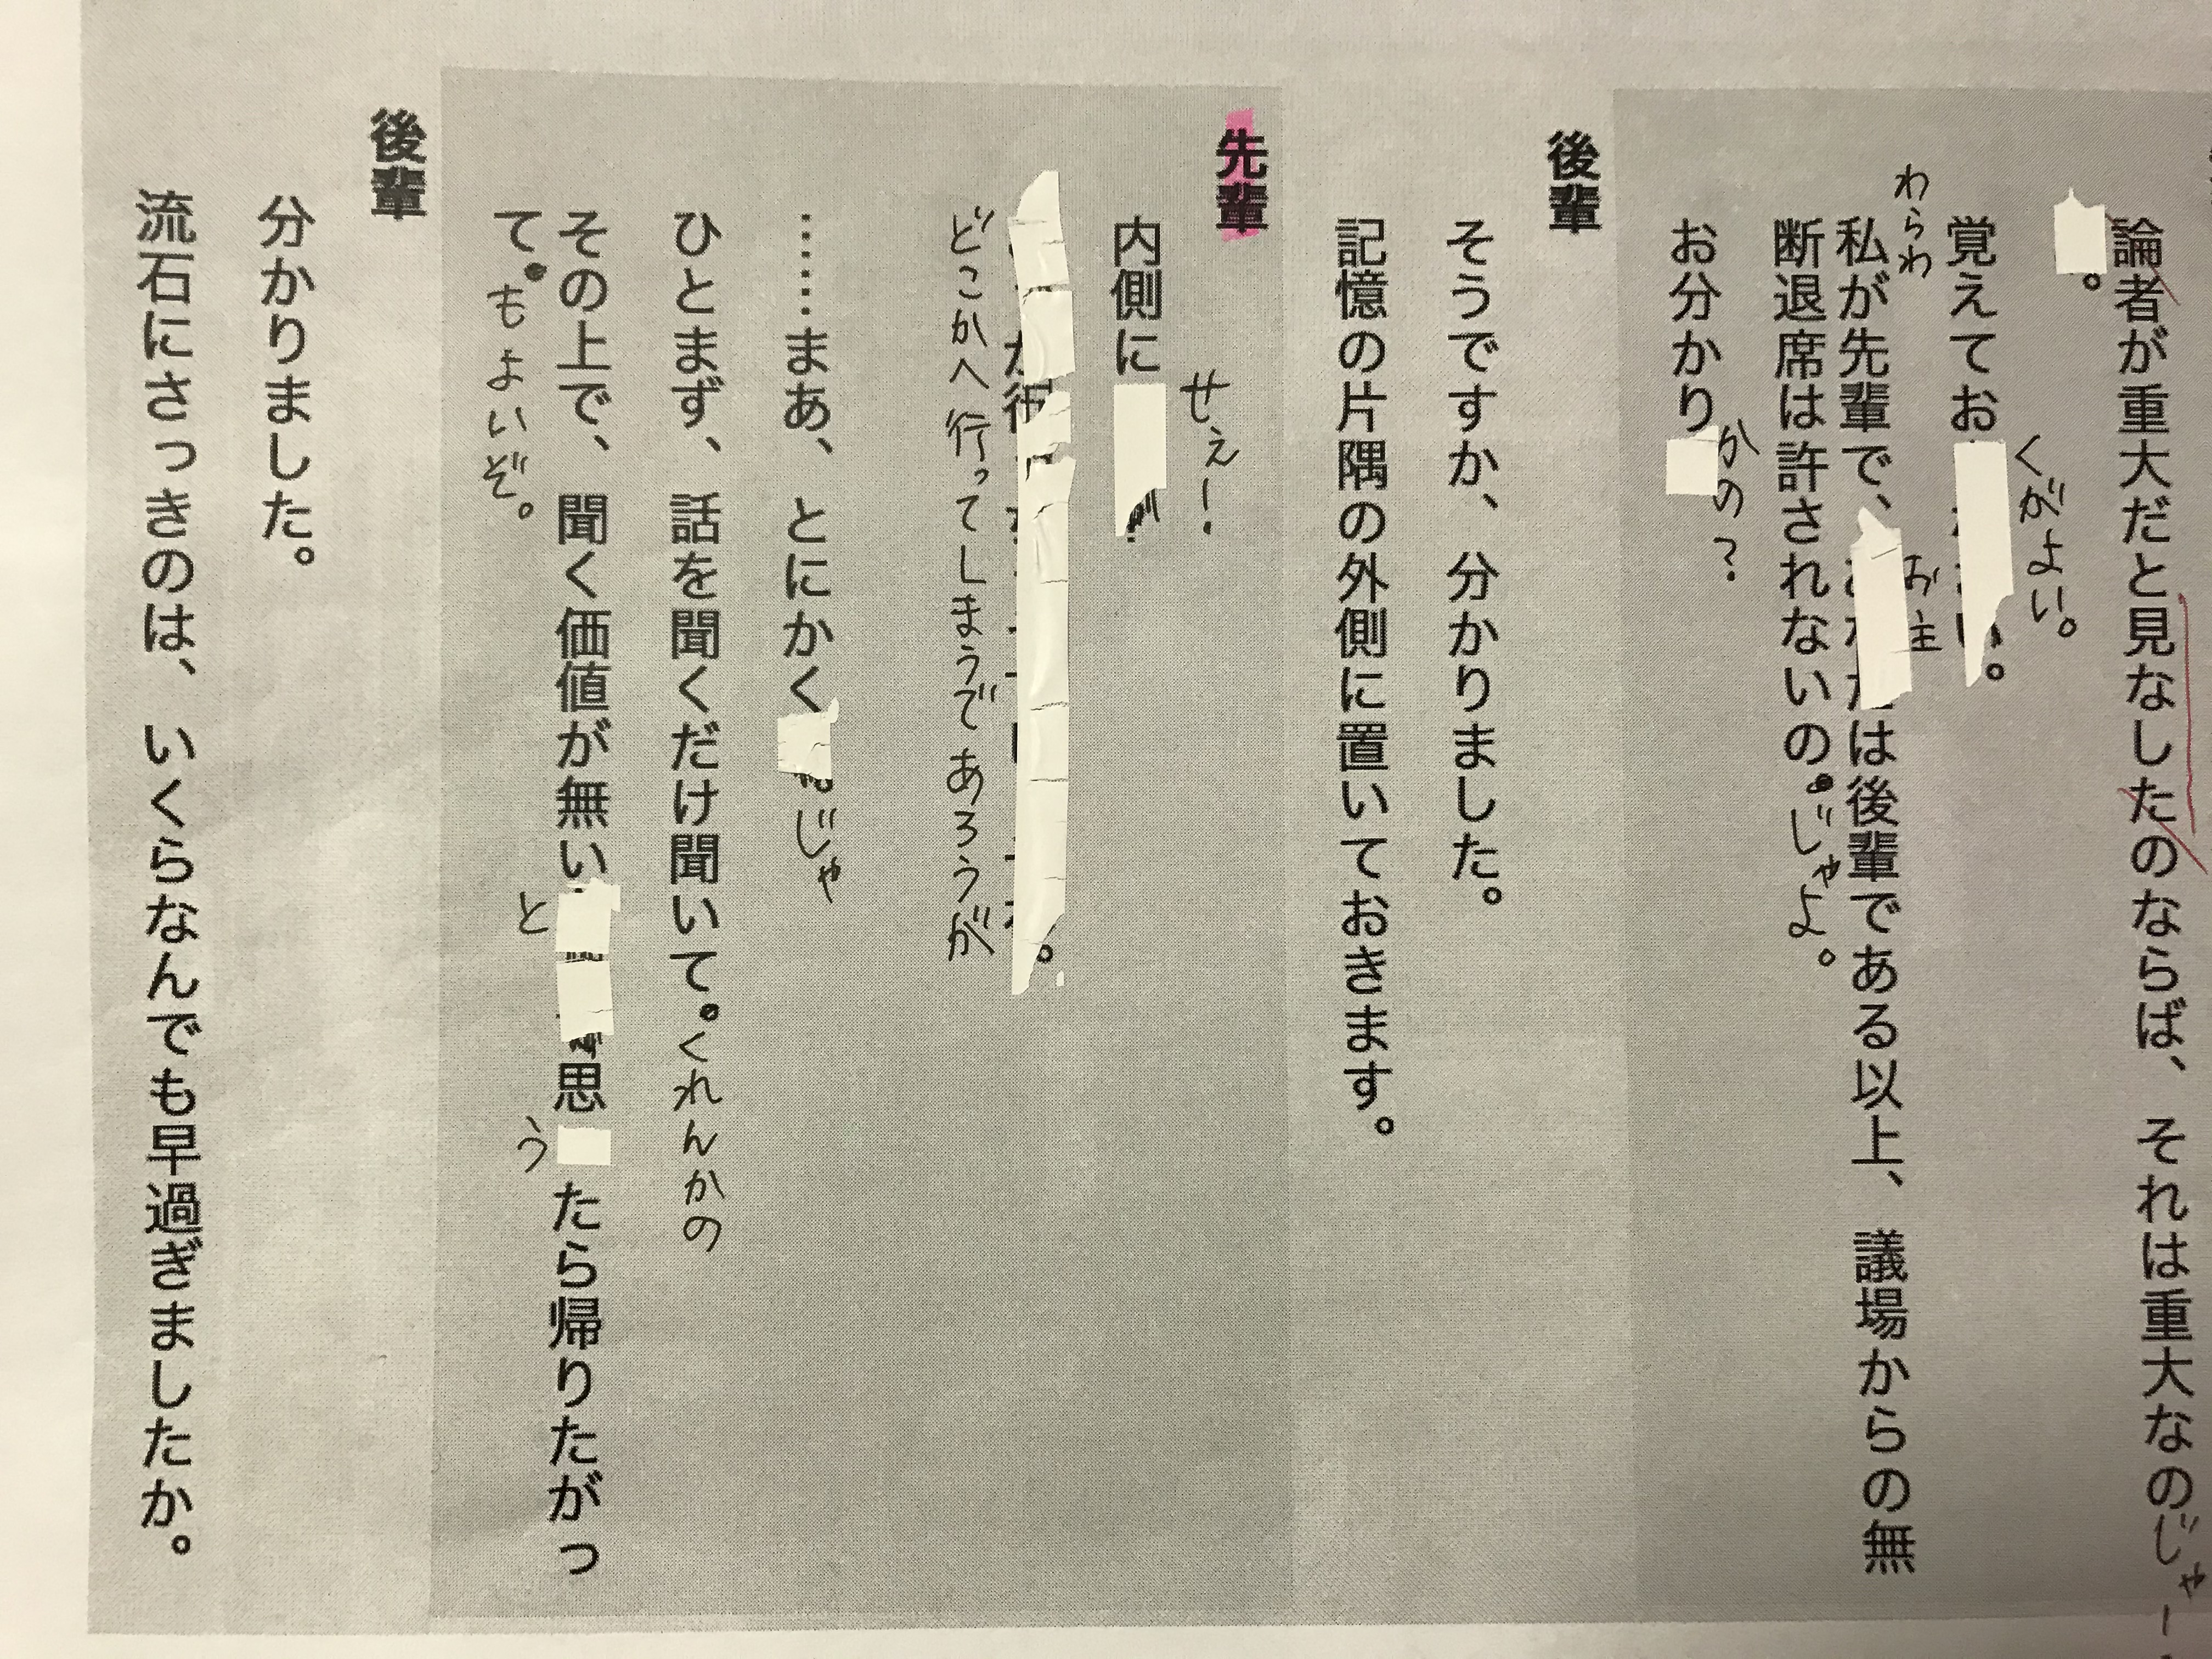 論者が重大だと見なしたのならば、それは重大なのじゃー
。
覚えてお
くがよい。
わらわ
私が先輩で、お主は後輩である以上、議場からの無
断退席は許されないの。じゃよ。
お分かりかの?
後輩
そうですか、分かりました。
記憶の片隅の外側に置いておきます。
先輩
せえー!
内側に
どこかへ行ってしまうであろうが
……まあ、とにかくじゃ
ひとまず、話を聞くだけ聞いて。くれんかの
その上で、聞く価値が無いと思うたら帰りたがっ
て。もよいぞ。
後輩
分かりました。
流石にさっきのは、いくらなんでも早過ぎましたか。